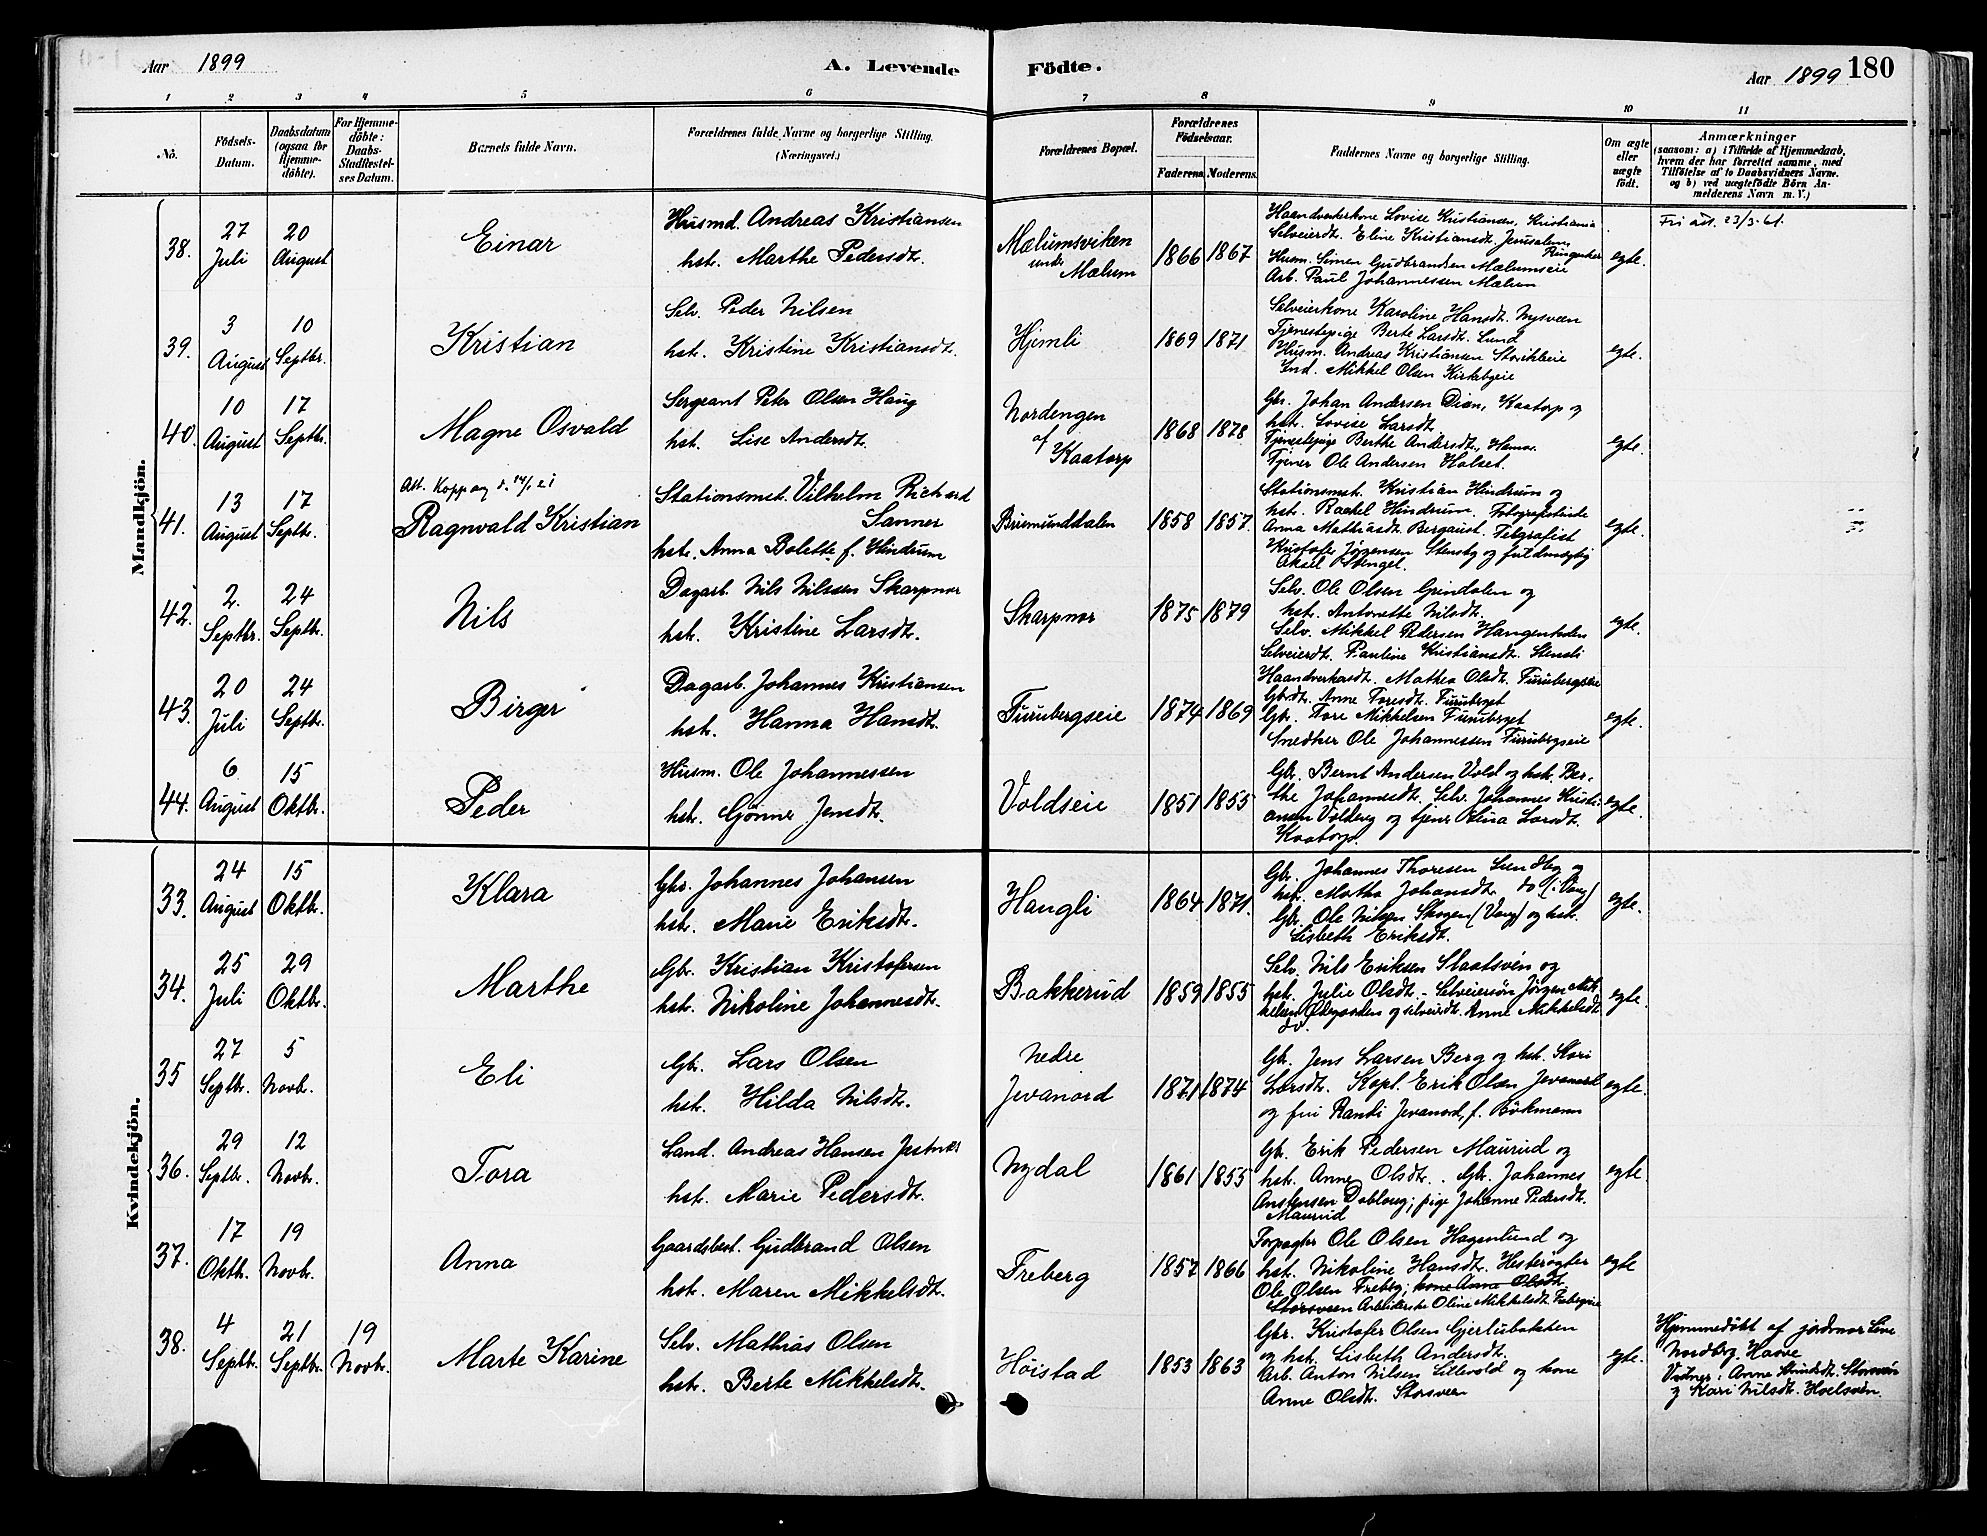 Aar 1899
A. Levende
Födte.
Aar 1899
180
1 2 3 4 5 6 7 8 9 10 11
No.
Födsels-
Datum.
Daabsdatum
(ogsaa for
Hjemme-
döbte).
For Hjemme-
döbte:
Daabs-
Stadfæstel-
ses Datum.
Barnets fulde Navn.
Forældrenes fulde Navne og borgerlige Stilling.
(Næringsvei.)
Forældrenes Bopæl.
Forældrenes
Födselsaar.
Faderens. Moderens.
Faddernes Navne og borgerlige Stilling.
Om ægte
eller
uægte
födt.
Anmærkninger
(saasom: a) i Tilfælde af Hjemmedaab,
hvem der har forrettet samme, med
Tilföielse af to Daabsvidners Navne.
og b) ved uægtefödte Börn An-
melderens Navn m. V.)
Mandkjön.
38.
27
Juli
20
August
Einar
Husmd. Andreas Kristiansen
hst. Marthe Pedersdt.
Mælumsviken
under
Mælum
1866 1867
Haandverkerkone Lovise Kristiansen, Kristiania
Selveierdt. Eline Kristiansdt. Jerusalem, Ringsaker
Husm. Simen Gudbrandsen Mælumseie
Arb. Paul Johannessen Mælum
egte.
Fri att. 23/3-61.
39.
3
August
10
Septbr.
Kristian
Selv. Peder Nilsen
hst. Kristine Kristiansdt.
Hjemli
1869 1871
Selveierkone Karoline Hansdt. Nysveen
Tjenestepige Berte Larsdt. Lund
Husm. Andreas Kristiansen
Ind. Mikkel Olsen Kirkebyeie
egte.
40.
10
August
17
Septbr.
Magne Osvald
Sergeant Peter Olsen Haug
hst. Lise Andersdt.
Nordengen
af
Kaatorp
1868 1878
Gbr. Johan Andersen Kaatorp og
hst. Lovise Larsdt.
Tjenestepige Berthe Andersdt., Hamar
Tjener Ole Andersen Holset.
egte.
41.
13
August
17
Septbr.
Att. Koppang
Ragnvald Kristian
Stationsmst. Vilhelm Richard
Sanner
hst. Anna Bolette f. Hindrum
1858 1857.
Stationsmst. Kristian Hindrum og
hst. Rachel Hindrum.
Anna Mathiasdt. Bergaust. Telgrafist
Kristofer Jørgensen Stensby og fuldmægtig
Aksel Stengel.
egte.
42.
2.
Septbr.
24
Septbr.
Nils
Dagarb. Nils Nilssen Skarpnor
hst. Kristine Larsdt.
Skarpnor
1875 1879
Selv. Ole Olsen Grindalen og
hst. Antonette Nilsdt.
Selv. Mikkel Pedersen
Selveierdt. Pauline Kristiansdt. Stensli
egte.
43.
20
Juli
24
Septbr.
Birger
Dagarb. Johannes Kristiansen
hst. Hanna Hansdt.
Furubergseie
1874 1869
Haandverkerdt. Mathea Olsdt. Furubergseie
Gbrdt. Anne Toresdt. Furuberget
Gbr. Tore Mikkelsen Furuberget
Snedker Ole Johannessen Furubergseie
egte.
44.
6
August
15
Oktbr.
Peder
Husm. Ole Johannessen
hst. Gønner Jensdt.
Voldseie
1851 1855
Gbr. Bernt Andersen Vold og hst. Ber-
the Johannesdt. Selv. Johannes Kristi-
ansen Volberg og tjener Elina Larsdt.
Kaatorp.
egte.
Kvindekjön.
33.
24
August
15
Oktbr.
Klara
Gbr. Johannes Johansen
hst. Marie Eriksdt.
Haugli
1864 1871.
Gbr. Johannes Thoresen Lundby og
hst. Martha Johansdt. do (i Vang)
Gbr. Ole Nilsen Skogen (Vang) og hst.
Lisbeth Eriksdt.
egte.
34.
25
Juli
29
Oktbr.
Marthe
Gbr. Kristian Kristofersen
hst. Nikoline Johannesdt.
Bakkerud
1859 1855
Selv. Nils Eriksen Slaatsvén og
hst. Julie Olsdt. - Selveiersøn Jörgen Mik-
kelsen Ødegaarden og selveierdt. Anne Mikkelsdt.
do.
egte.
35
27
Septbr.
5
Novbr.
Eli
Gbr. Lars Olsen
hst. Hilda Nilsdt.
Nedre
Jevanord
1871 1874
Gbr. Jens Larsen Berg og hst. Kari
Larsdt. Kapt. Erik Olsen Jevanord
og frú Randi Jevanord, f. Bökmann
egte.
36.
29
Septbr.
12
Novbr.
Tora
Land. Andreas Hansen
hst. Marie Pedersdt.
Nydal
1861 1855
Gbr. Erik Pedersen Maurud og
hst. Anne Olsdt. . Gbr. Johannes
Anstensen Dobloug; pige Johanne Pedersdt.
Maurud
egte.
37.
17
Oktbr.
19
Novbr.
Anna
Gaardsbest. Gudbrand Olsen
hst. Maren Mikkelsdt.
Freberg
1857 1866
Forpagter Ole Olsen Hagenlund og
hst. Nikoline Hansdt.
Ole Olsen Freberg; kone Anne Olsdt.
Storsveen Arbeiderske Oline Mikkelsdt. Frebergeie
egte
38.
4
Septbr.
21
Septbr.
19
Novbr.
Marte Karine
Selv. Mathias Olsen
hst. Berte Mikkelsdt.
Höistad
1853 1863
Gbr. Kristofer Olsen Gjerlubakken
og hst. Lisbeth Andersdt.
Arb. Anton Nilsen Lillevold og kone
Anne Olsdt. Storsveen
egte.
Hjemmedöbt af jordmor Line
Nordberg, Haave
Vidner: Anne Storsvén
og Kari Nilsdt. Hoelsvén.